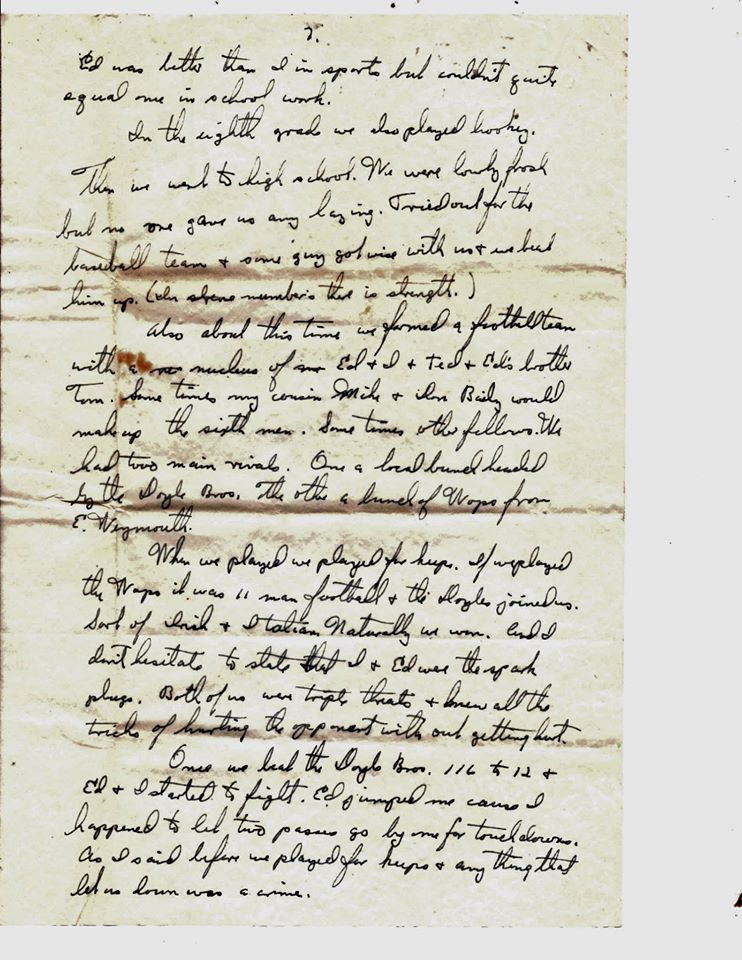 7.
Ed was better than I in sports but couldn't quite
equal me in school work.
In the eighth grade we also played hookey.
Then we went to high school. We were lowly frosh
but no one gave us any hazing. Tried out for the
baseball team & some guy got wise with us & we beat
him up. (In numbers there is strength.)
Also about this time we formed a football team
with a nucleus of Ed & I & Ted & Ed's brother
Tom. Some times my cousin Mike & Baily would
make up the sixth men. Some times other fellows. We
had two main rivals. One a local bunch headed
by the Doyle Bros. The other a bunch of Wops from
E. Weymouth.
When we played we played for keeps. If we played
the Wops it was 11 man football & the Doyles joined us.
Sort of Irish & Italian. Naturally we won. And I
don't hesitate to state that I & Ed were the spark
plugs. Both of us were triple threats & knew all the
tricks of hurting the opponent with out getting hurt.
Once we beat the Doyle Bros. 116 to 12 &
Ed & I started to fight. Ed jumped me cause I
happened to let two passes go by me for touchdowns.
As I said before we played for keeps & any thing that
let us down was a crime.